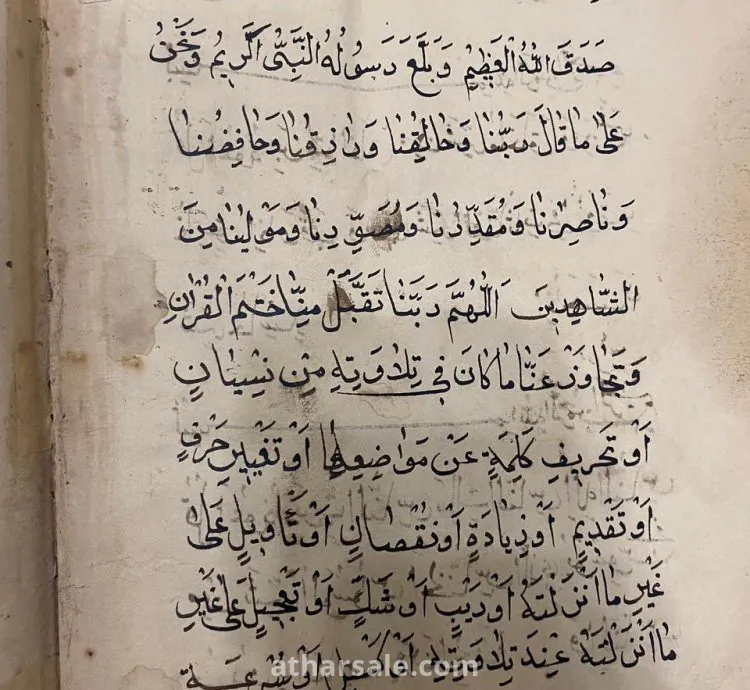 صَدَقَ اللّٰهُ الْعَظِيْمُ وَبَلَّغَ رَسُولُهُ النَّبِيُّ الْكَرِيْمُ وَنَحْنُ
عَلٰى مَا قَالَ رَبُّنَا وَخَالِقُنَا وَرَازِقُنَا وَحَافِضُنَا
وَنَاصِرُنَا وَمُقَدِّرُنَا وَمُصَوِّرِنَا وَمَوْلٰينَا مِنَ
الشَّاهِدِينَ اَللّٰهُمَّ رَبَّنَا تَقَبَّلْ مِنَّا خَتْمَ الْقُرْاٰنِ
وَتَجَاوَزْ عَنَّا مَا كَانَ فِي تِلَاوَتِهِ مِنْ نِسْيَانٍ
اَوْ تَحْرِيفِ كَلِمَةٍ عَنْ مَوَاضِعِهَا اَوْ تَغْيِيرِ حَرْفٍ
اَوْ تَقْدِيمٍ اَوْ زِيَادَةٍ اَوْ نُقْصَانٍ اَوْ تَأْوِيلٍ عَلٰى
غَيْرِ مَا اَنْزَلْتَهُ اَوْ رَيْبٍ اَوْ شَكٍّ اَوْ تَعْجِيلٍ عَلٰى غَيْرِ
مَا اَنْزَلْتَهُ عِنْدَ تِلَاوَتِهِ اَوْ كَسَلٍ اَوْ سُرْعَةٍ
atharsale.com